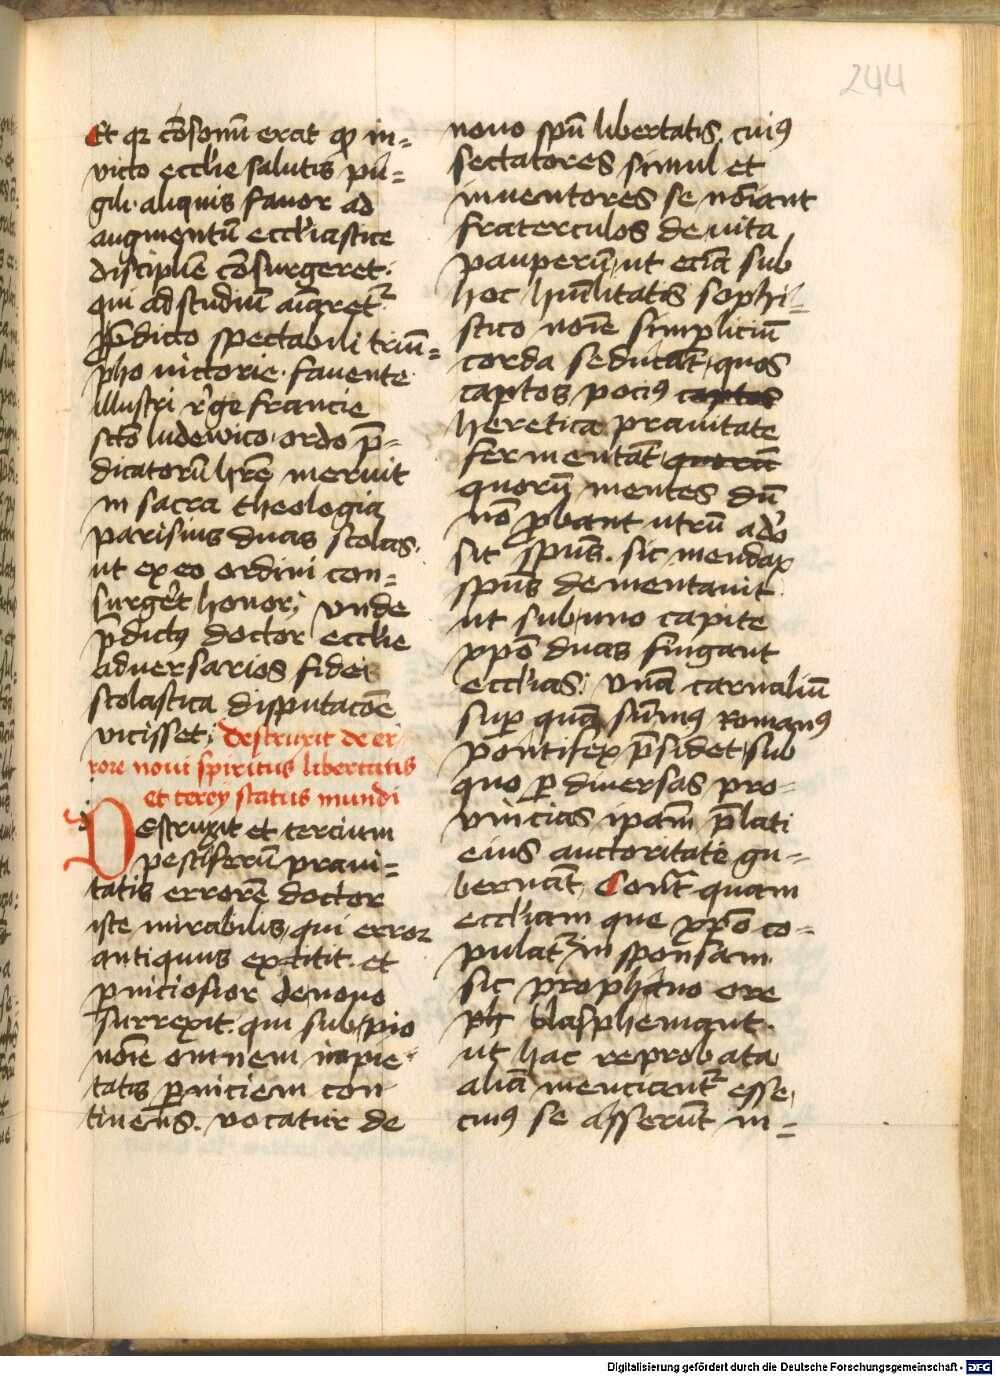 244
Et qz cōsonū erat qp in=
victo eccl'ie salutis pu=
gili aliquis fauor ad
augmentū eccl'iastice
discipl'ie cōsurgeret.
qui ad studiū aīaret^r
p̄dicto spectabili triū=
pho uictorie. fauente
illustri r'ge francie
scō ludewico ordo p̄=
dicatorū h̄rē meruit
in sacra theologia
parisius duas scolas.
ut ex eo ordini con=
surg'et honor; vnde
p̄dictꝰ doctor eccl'ie
aduersarios fidei
scolastica disputacōe
vicisset; Destruxit de er
rore noui spiritus libertatis
et tercij status mundi
Destruxit et tercium
pestiferū praui=
tatis errorē doctor
iste mirabilis, qui error
antiquus extitit. et
ꝑniciosior denouo
surrexit. qui sub pio
noīe omnem impie=
tatis ꝑniciem con
tinens. vocatur de
nouo spū libertatis. cuiꝰ
sectatores simul et
inuentores se noīant
fraterculos de uita
pauperū, ut eciā sub
hoc hūilitatis sophi=
stico noīe simpliciū
corda seducāt, quos
captos pociꝰ captos
heretica prauitate
fermentāt quorū
quorū mentes dū
nō ꝓbant utrū a d'o
sit spūs. sic mendax
spūs dementauit.
ut sub uno capite
xp̄o duas fingant
eccl'ias; Vnā carnaliū
suꝑ quā sūmꝰ Romanꝰ
pontifex p̄sidet, sub
quo ꝑ diuersas pro=
vincias ipam p̄lati
eius auctoritate gu=
bernāt, Cont̄ quam
eccl'iam que xp̄o co=
pulat^r in sponsam.
sic prophano ore
ph blasphemant.
ut hac reprobata
aliā menciant^r esse,
cuiꝰ se asserūt in=
Digitalisierung gefördert durch die Deutsche Forschungsgemeinschaft - DFG